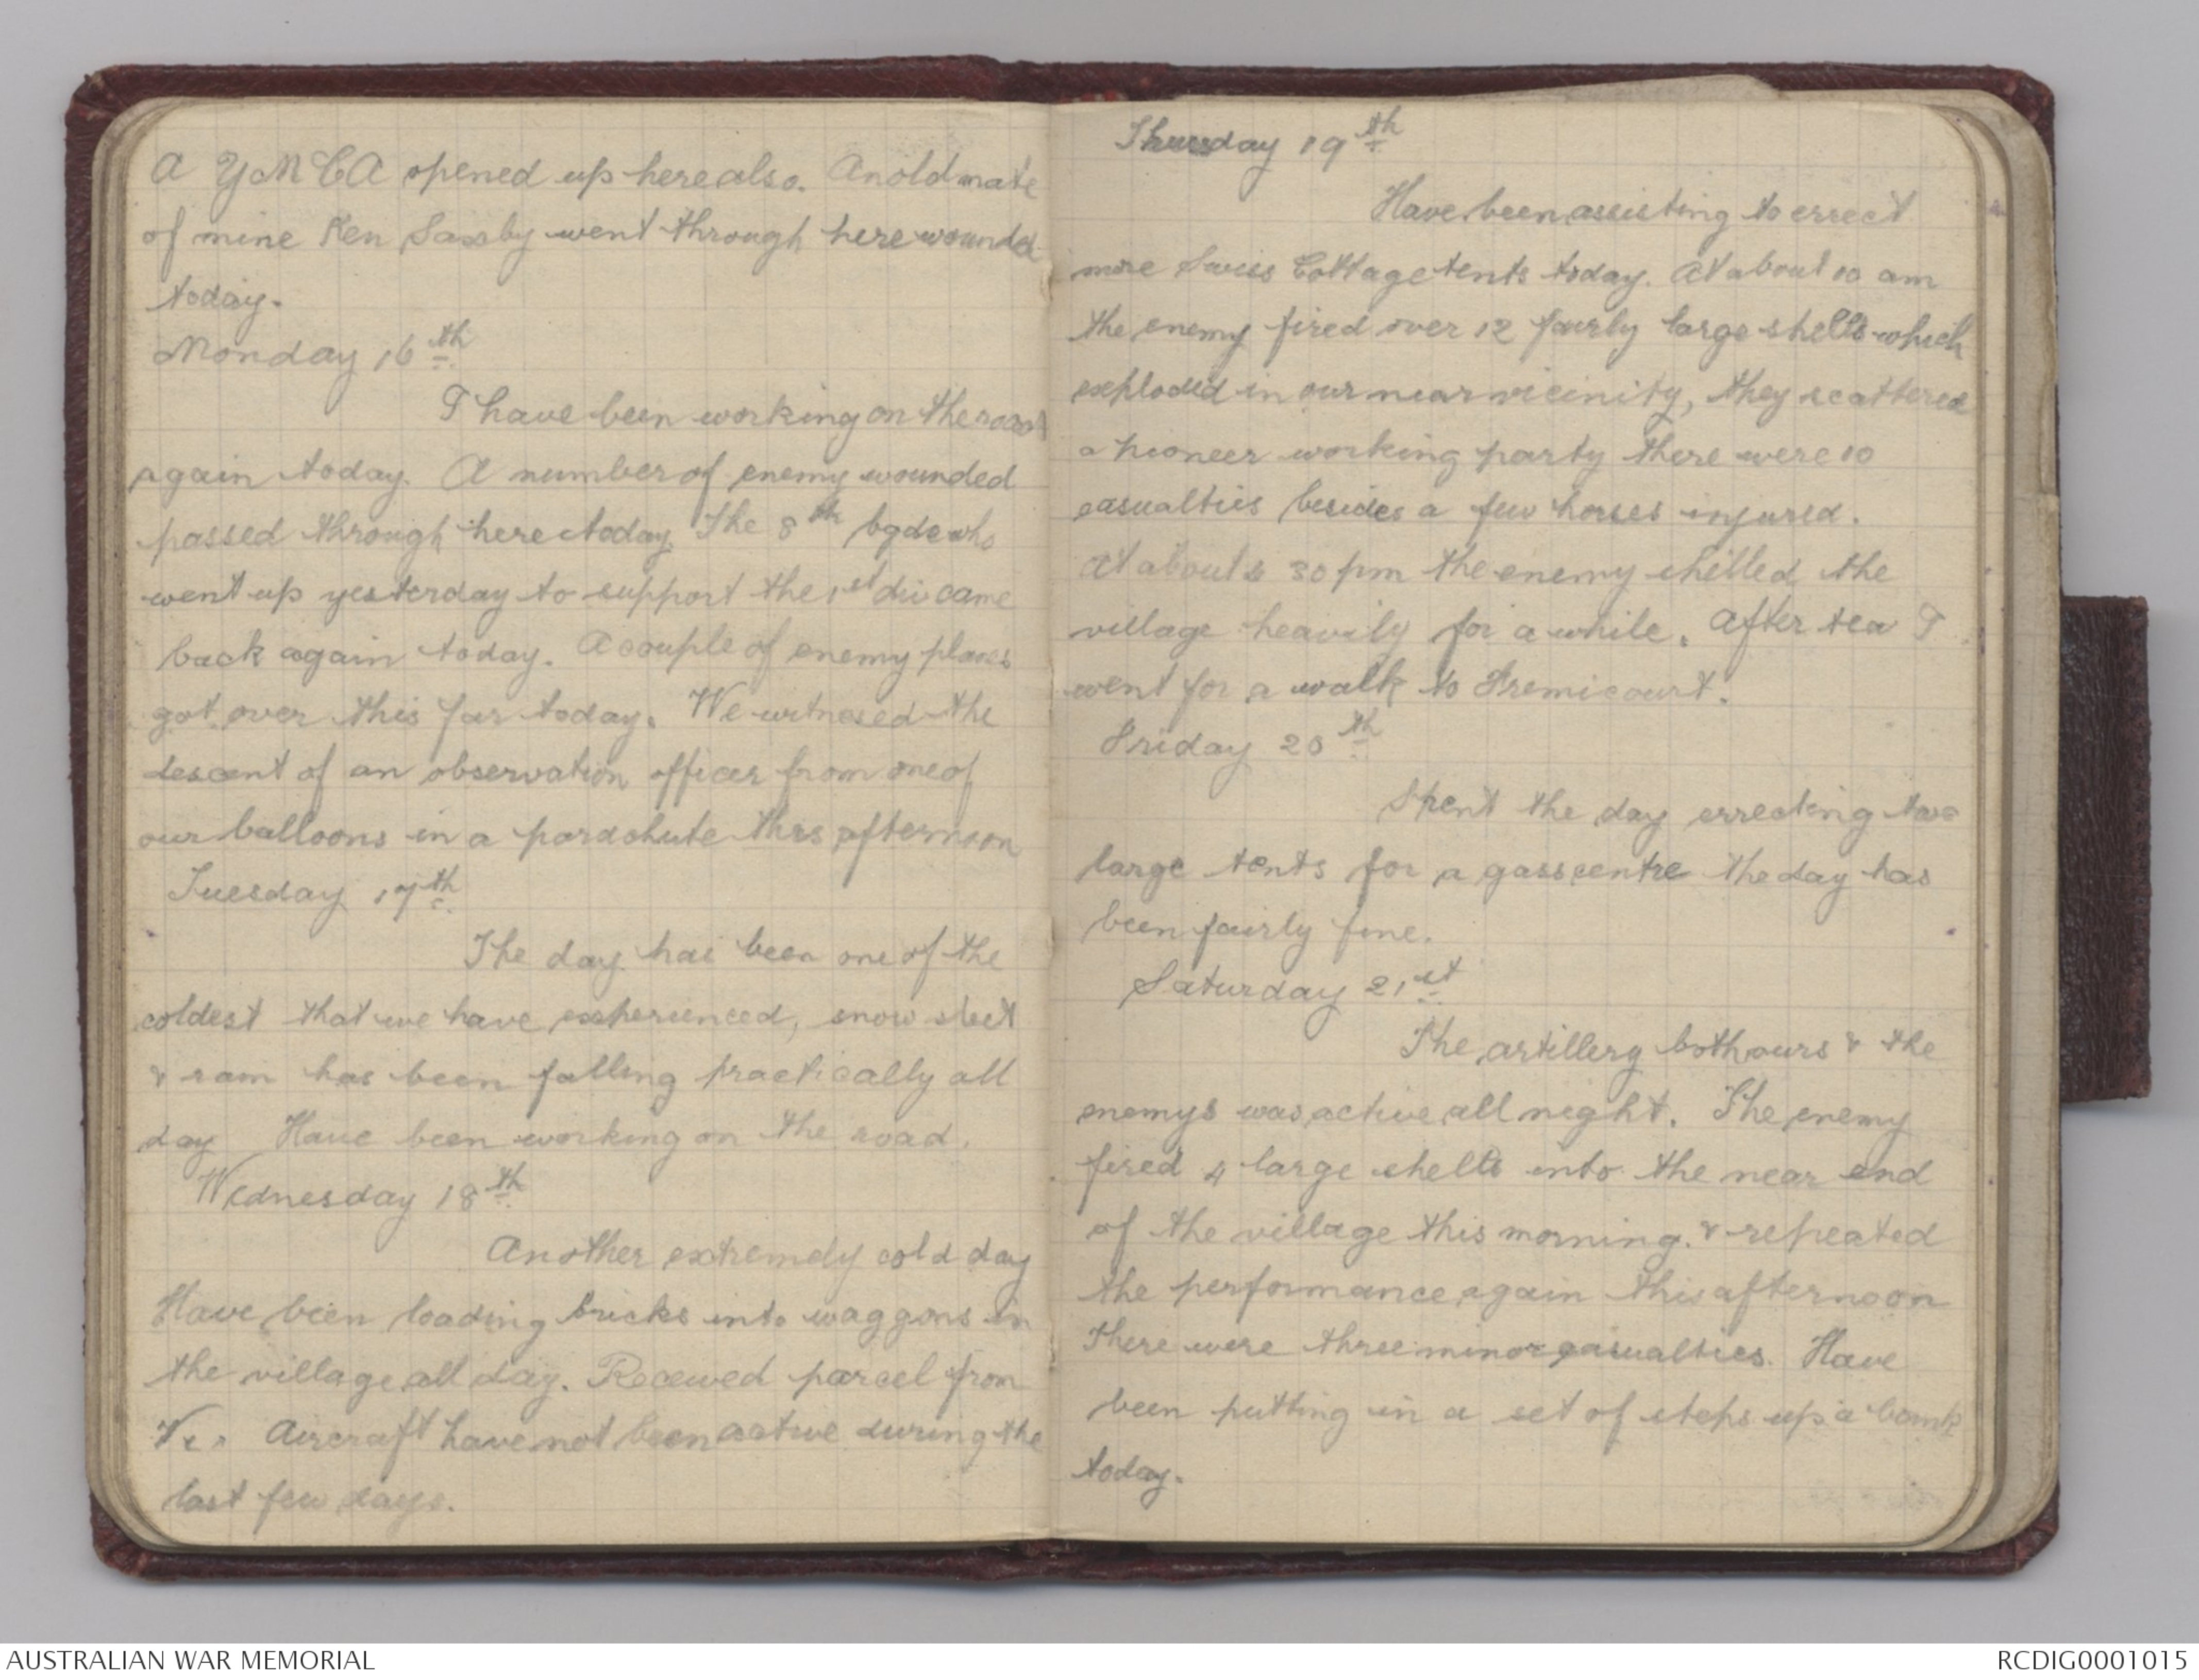 A YMCA opened up here also. An old mate
of mine Ken Saxby went through here wounded
today.
Monday 16th
I have been working on the road
again today. A number of enemy wounded
passed through here today. The 8th bgde who
went up yesterday to support the 1st div came
back again today. A couple of enemy planes
got over this far today. We witnesed the
descent of an observation officer from one of
our balloons in a parachute this afternoon
Tuesday 17th
The day has been one of the
coldest that we have experienced, snow sleet
& rain has been falling practically all
day Have been working on the road.
Wednesday 18th
Another extremely cold day
Have been loading bricks into waggons in
the village all day. Received parcel from
Aircraft have not been active during the
last few days.
Thursday 19th
Have been assisting to errect
more Swiss Cottage tents today. At about 10 am
the enemy fired over 12 fairly large shells which
exploded in our near vicinity, they scattered
a pioneer working party there were 10
casualties besides a few horses injured.
At about 30 pm the enemy shelled the
village heavily for a while. After tea I
went for a walk to Fremicourt.
Friday 20th
Spent the day errecting two
large tents for a gass centre the day has
been fairly fine.
Saturday 21st
The artillery both ours & the
enemys was active all night. The enemy
fired 4 large shells into the near end
of the village this morning. & repeated
the performance again this afternoon
There were three minor casualties. Have
been putting in a set of steps up a bank
today.
AUSTRALIAN WAR MEMORIAL
RCDIG0001015